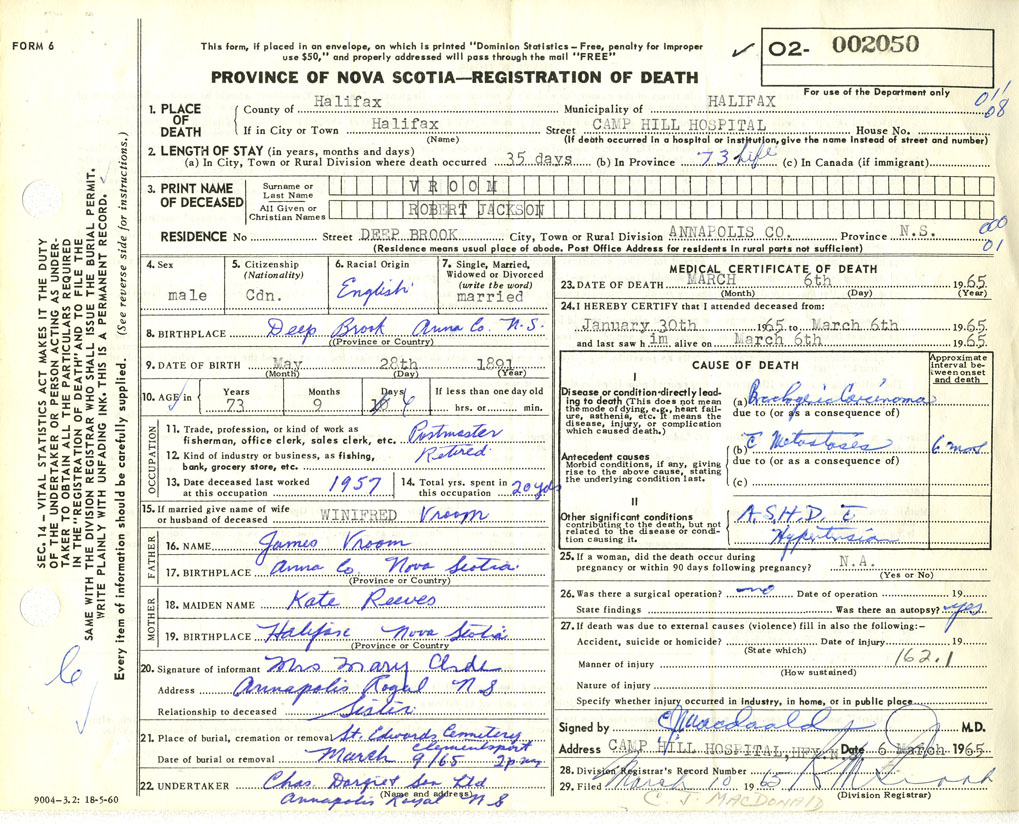 FORM 6
This form, if placed in an envelope, on which is printed "Dominion Statistics – Free, penalty for improper
use $50," and properly addressed will pass through the mail "FREE"
✓ O2- 002050
PROVINCE OF NOVA SCOTIA—REGISTRATION OF DEATH
For use of the Department only
011
08
1. PLACE OF DEATH
County of Halifax Municipality of HALIFAX
If in City or Town Halifax Street CAMP HILL HOSPITAL House No.
(Name) (If death occurred in a hospital or institution, give the name instead of street and number)
2. LENGTH OF STAY (in years, months and days)
(a) In City, Town or Rural Division where death occurred 35 days (b) In Province 73 life (c) In Canada (if immigrant)
3. PRINT NAME OF DECEASED
Surname or Last Name VROOM
All Given or Christian Names ROBERT JACKSON
000
01
RESIDENCE No Street DEEP BROOK City, Town or Rural Division ANNAPOLIS CO. Province N.S.
(Residence means usual place of abode. Post Office Address for residents in rural parts not sufficient)
4. Sex
male
5. Citizenship
(Nationality)
Cdn.
6. Racial Origin
English
7. Single, Married,
Widowed or Divorced
(write the word)
married
8. BIRTHPLACE Deep Brook Anna Co. N.S.
(Province or Country)
9. DATE OF BIRTH May 28th 1891
(Month) (Day) (Year)
10. AGE in ✓
Years Months Days If less than one day old
73 9 6 hrs. or min.
OCCUPATION
11. Trade, profession, or kind of work as
fisherman, office clerk, sales clerk, etc. Postmaster
12. Kind of industry or business, as fishing,
bank, grocery store, etc. Retired
13. Date deceased last worked
at this occupation 1957
14. Total yrs. spent in
this occupation 20 yrs
15. If married give name of wife
or husband of deceased WINIFRED Vroom
FATHER
16. NAME James Vroom
17. BIRTHPLACE Anna Co Nova Scotia
(Province or Country)
MOTHER
18. MAIDEN NAME Kate Reeves
19. BIRTHPLACE Halifax Nova Scotia
(Province or Country)
20. Signature of informant Mrs Mary
Address Annapolis Royal N S
Relationship to deceased Sister
21. Place of burial, cremation or removal St. Edwards Cemetery
Clementsport
Date of burial or removal March 9/65 2 p.m.
22. UNDERTAKER Chas. Dargie & Son Ltd
(Name and address)
Annapolis Royal N S
MEDICAL CERTIFICATE OF DEATH
23. DATE OF DEATH MARCH 6th 1965
(Month) (Day) (Year)
24. I HEREBY CERTIFY that I attended deceased from:
January 30th 1965 to March 6th 1965
and last saw him alive on March 6th 1965
CAUSE OF DEATH
Approximate
interval be-
tween onset
and death
I
Disease or condition directly lead-
ing to death (This does not mean
the mode of dying, e.g., heart fail-
ure, asthenia, etc. It means the
disease, injury, or complication
which caused death.)
(a) Carcinoma
due to (or as a consequence of)
(b) c̄ Metastases 6 mos
Antecedent causes
Morbid conditions, if any, giving
rise to the above cause, stating
the underlying condition last.
due to (or as a consequence of)
(c)
II
Other significant conditions
contributing to the death, but not
related to the disease or condi-
tion causing it.
A.S.H.D. c̄
Hypertension
25. If a woman, did the death occur during
pregnancy or within 90 days following pregnancy? N.A.
(Yes or No)
26. Was there a surgical operation? no Date of operation 19
State findings Was there an autopsy? yes
27. If death was due to external causes (violence) fill in also the following:-
Accident, suicide or homicide? Date of injury 19
(State which)
162.1
Manner of injury
(How sustained)
Nature of injury
Specify whether injury occurred in industry, in home, or in public place
Signed by C J Macdonald M.D.
Address CAMP HILL HOSPITAL, HFX. N.S. Date 6 March 1965
28. Division Registrar's Record Number
29. Filed March 10 1965
(Division Registrar)
C. J. MACDONALD
SEC. 14 – VITAL STATISTICS ACT MAKES IT THE DUTY
OF THE UNDERTAKER OR PERSON ACTING AS UNDER-
TAKER TO OBTAIN ALL THE PARTICULARS REQUIRED
IN THE "REGISTRATION OF DEATH" AND TO FILE THE
SAME WITH THE DIVISION REGISTRAR WHO SHALL ISSUE THE BURIAL PERMIT.
WRITE PLAINLY WITH UNFADING INK. THIS IS A PERMANENT RECORD.
Every item of information should be carefully supplied. (See reverse side for instructions.)
6
✓
9004-3.2: 18-5-60